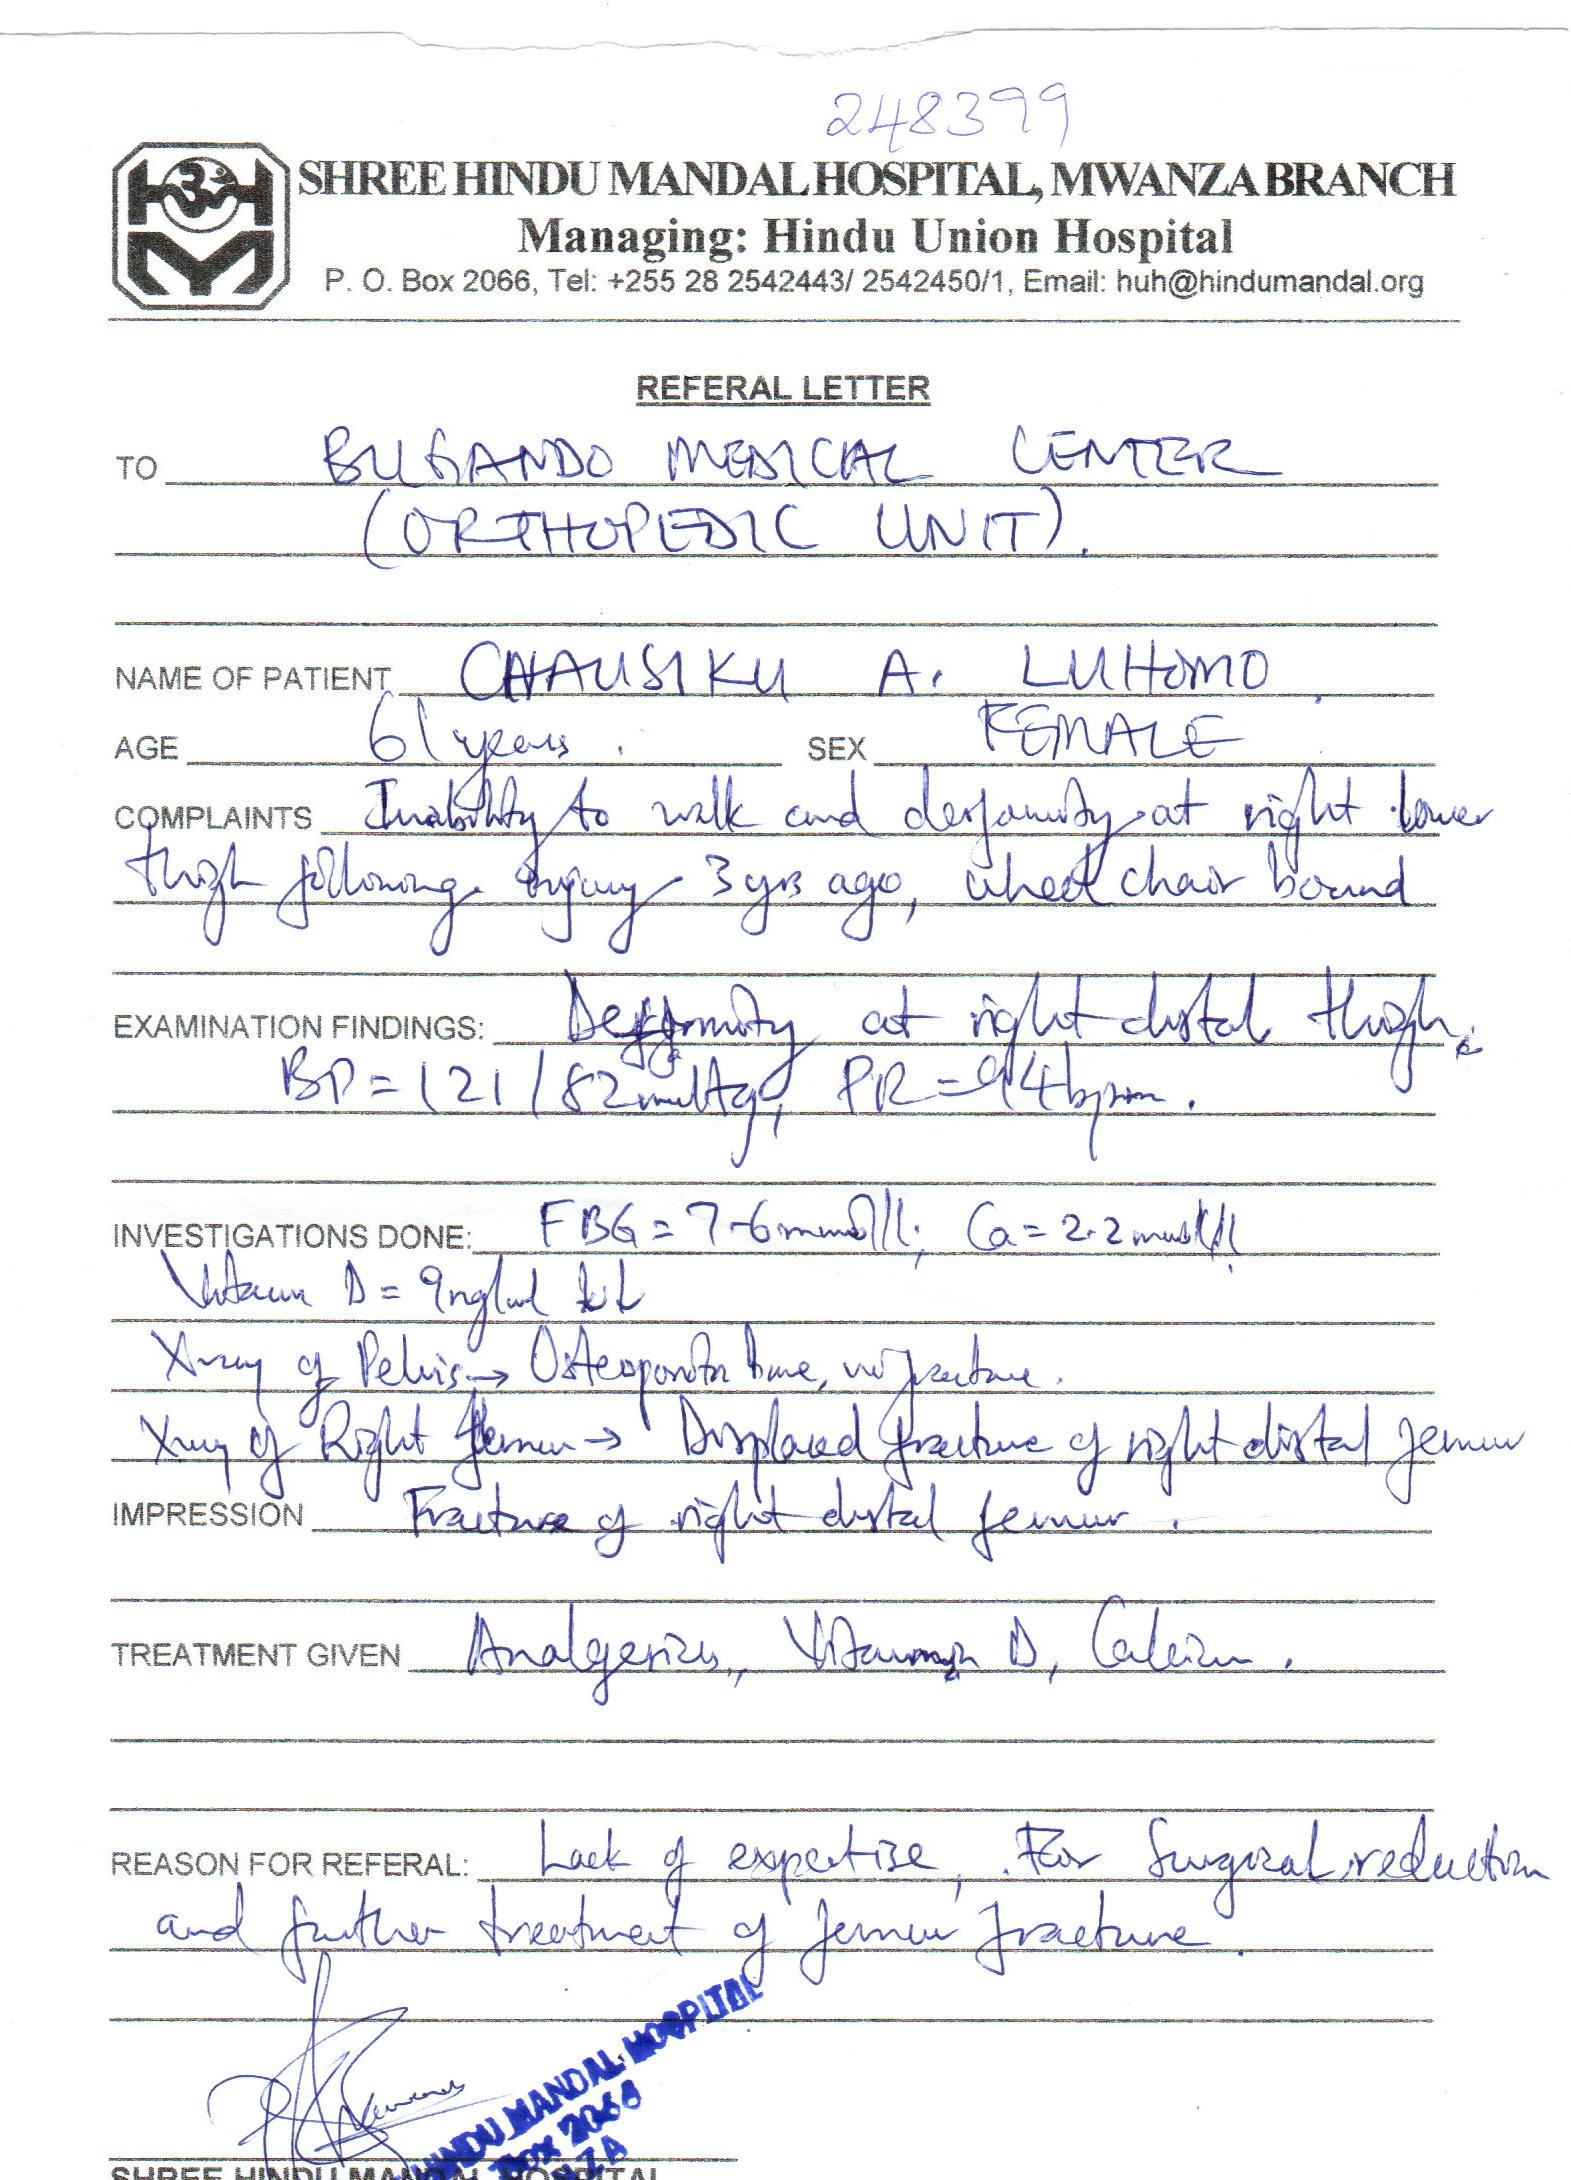 248399
SHREE HINDU MANDAL HOSPITAL, MWANZA BRANCH
Managing: Hindu Union Hospital
P. O. Box 2066, Tel: +255 28 2542443/ 2542450/1, Email: huh@hindumandal.org
REFERAL LETTER
TO BUGANDO MEDICAL CENTER
(ORTHOPEDIC UNIT).
NAME OF PATIENT CHAUSIKU A. LUHOMO
AGE 61 years. SEX FEMALE
COMPLAINTS Inability to walk and deformity at right lower
thigh following injury 3 yrs ago, wheel chair bound
EXAMINATION FINDINGS: Deformity at right distal thigh.
BP = 121/82mmHg, PR = 94bpm.
INVESTIGATIONS DONE: FBG = 7.6mmol/l; Ca = 2.2mmol/l
Vitamin D = 9ng/ml
Xray of Pelvis → Osteoporotic bone, no fracture.
Xray of Right femur → Displaced fracture of right distal femur
IMPRESSION Fracture of right distal femur.
TREATMENT GIVEN Analgesics, Vitamin D, Calcium.
REASON FOR REFERAL: Lack of expertise, For Surgical reduction
and further treatment of femur fracture.
HINDU MANDAL HOSPITAL
BOX 2066
SHREE HINDU MANDAL HOSPITAL